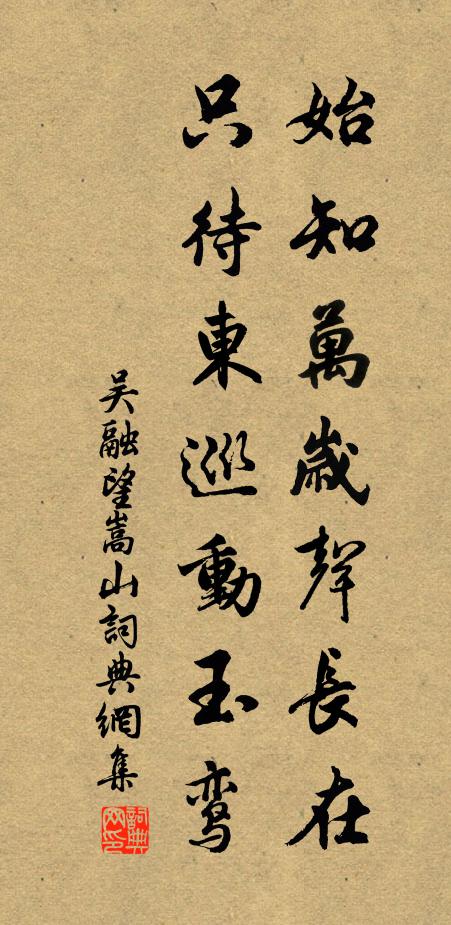 始知萬歲聲長在
只待東巡動玉鸾
吴融望嵩山詞典網集
詞典網印